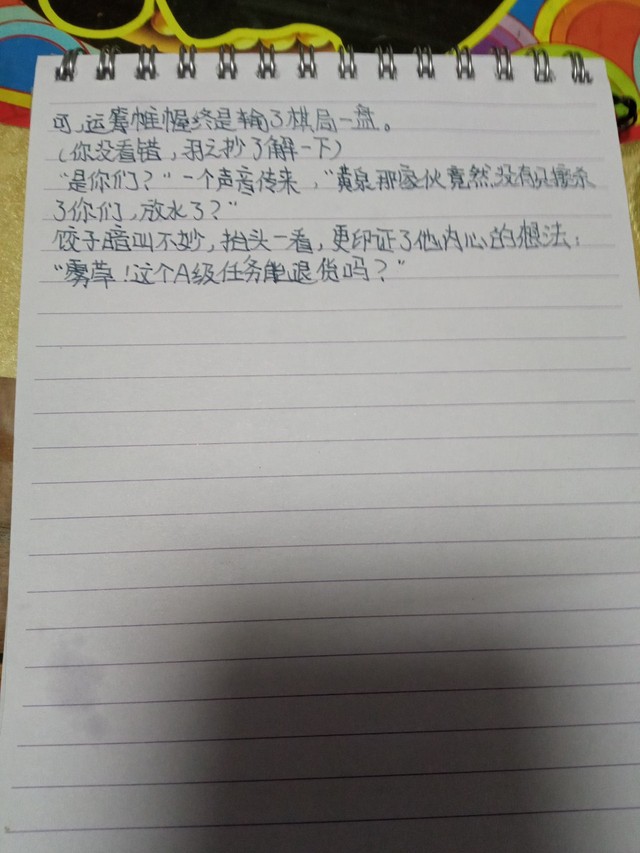 可,运筹帷幄终是输了棋局一盘。
(你没看错,羽之抄了解一下)
“是你们?”一个声音传来,“黄泉那家伙竟然没有只接杀
了你们,放水了?”
饺子暗叫不妙,抬头一看,更印证了他内心的想法:
“雾草!这个A级任务能退货吗?”